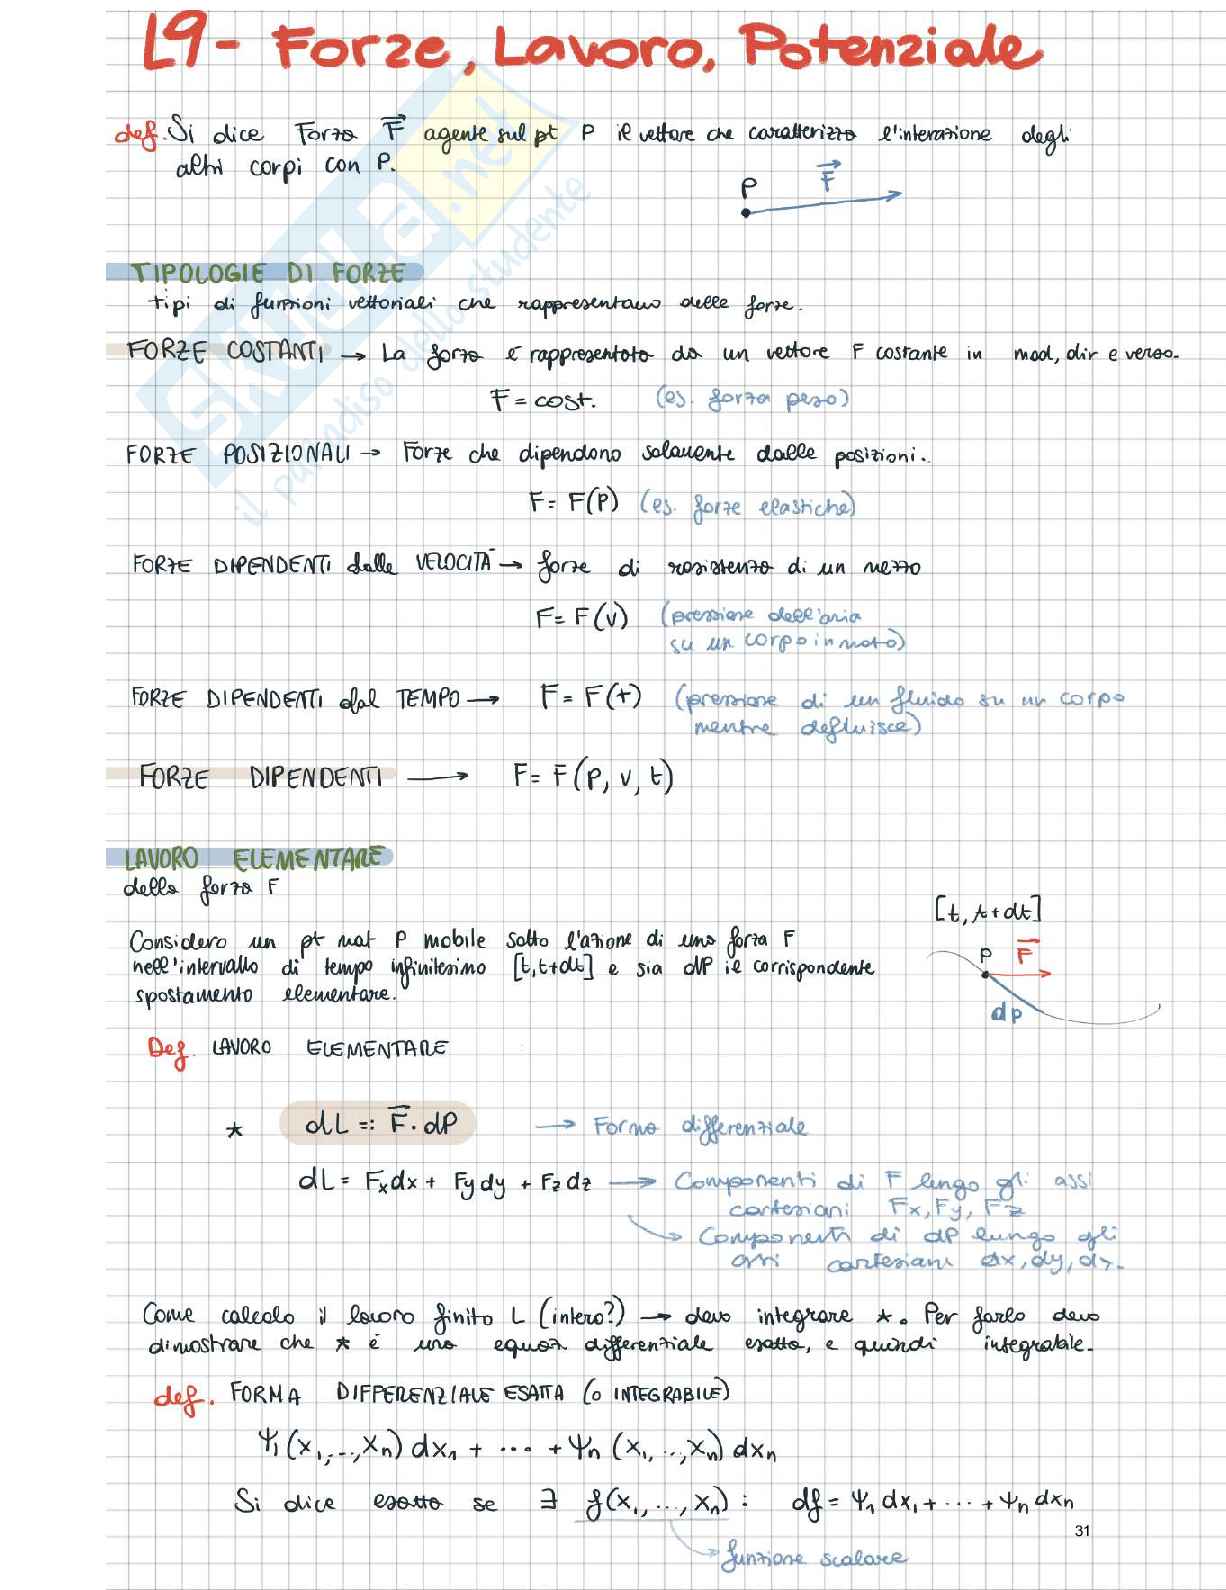 L9 - Forze, Lavoro, Potenziale
def. Si dice Forza F agente sul pt P il vettore che caratterizza l'interazione degli
altri corpi con P.
P F
TIPOLOGIE DI FORZE
tipi di funzioni vettoriali che rappresentano delle forze.
FORZE COSTANTI → La forza è rappresentata da un vettore F costante in mod, dir e verso.
F = cost. (es. forza peso)
FORZE POSIZIONALI → Forze che dipendono solamente dalle posizioni.
F = F(P) (es. forze elastiche)
FORZE DIPENDENTI dalle VELOCITÀ → forze di resistenza di un mezzo
F = F(v) (pressione dell'aria
su un corpo in moto)
FORZE DIPENDENTI dal TEMPO → F = F(t) (pressione di un fluido su un corpo
mentre defluisce)
FORZE DIPENDENTI → F = F(P, v, t)
LAVORO ELEMENTARE
della forza F
[t, t+dt]
Considero un pt mat P mobile sotto l'azione di una forza F
nell'intervallo di tempo infinitesimo [t, t+dt] e sia dP il corrispondente
spostamento elementare.
P F
dp
Def. LAVORO ELEMENTARE
* dL =: F · dP → Forma differenziale
dL = Fxdx + Fydy + Fzdz → Componenti di F lungo gli assi
cartesiani Fx, Fy, Fz
→ Componenti di dP lungo gli
assi cartesiani dx, dy, dz.
Come calcolo il lavoro finito L (intero?) → devo integrare *. Per farlo devo
dimostrare che * è una equaz differenziale esatta, e quindi integrabile.
def. FORMA DIFFERENZIALE ESATTA (o INTEGRABILE)
Ψ1(x1, ..., xn) dx1 + ... + Ψn (x1, ..., xn) dxn
Si dice esatta se ∃ f(x1, ..., xn) : df = Ψ1 dx1 + ... + Ψn dxn
31
→ funzione scalare
skuola.net
il paradiso dello studente